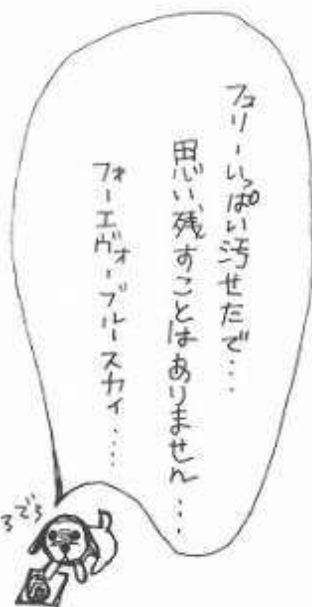 フュリーいっぱい汚せたで‥‥
思い残すことはありません‥‥
フォーエヴォーブルースカイ‥‥‥